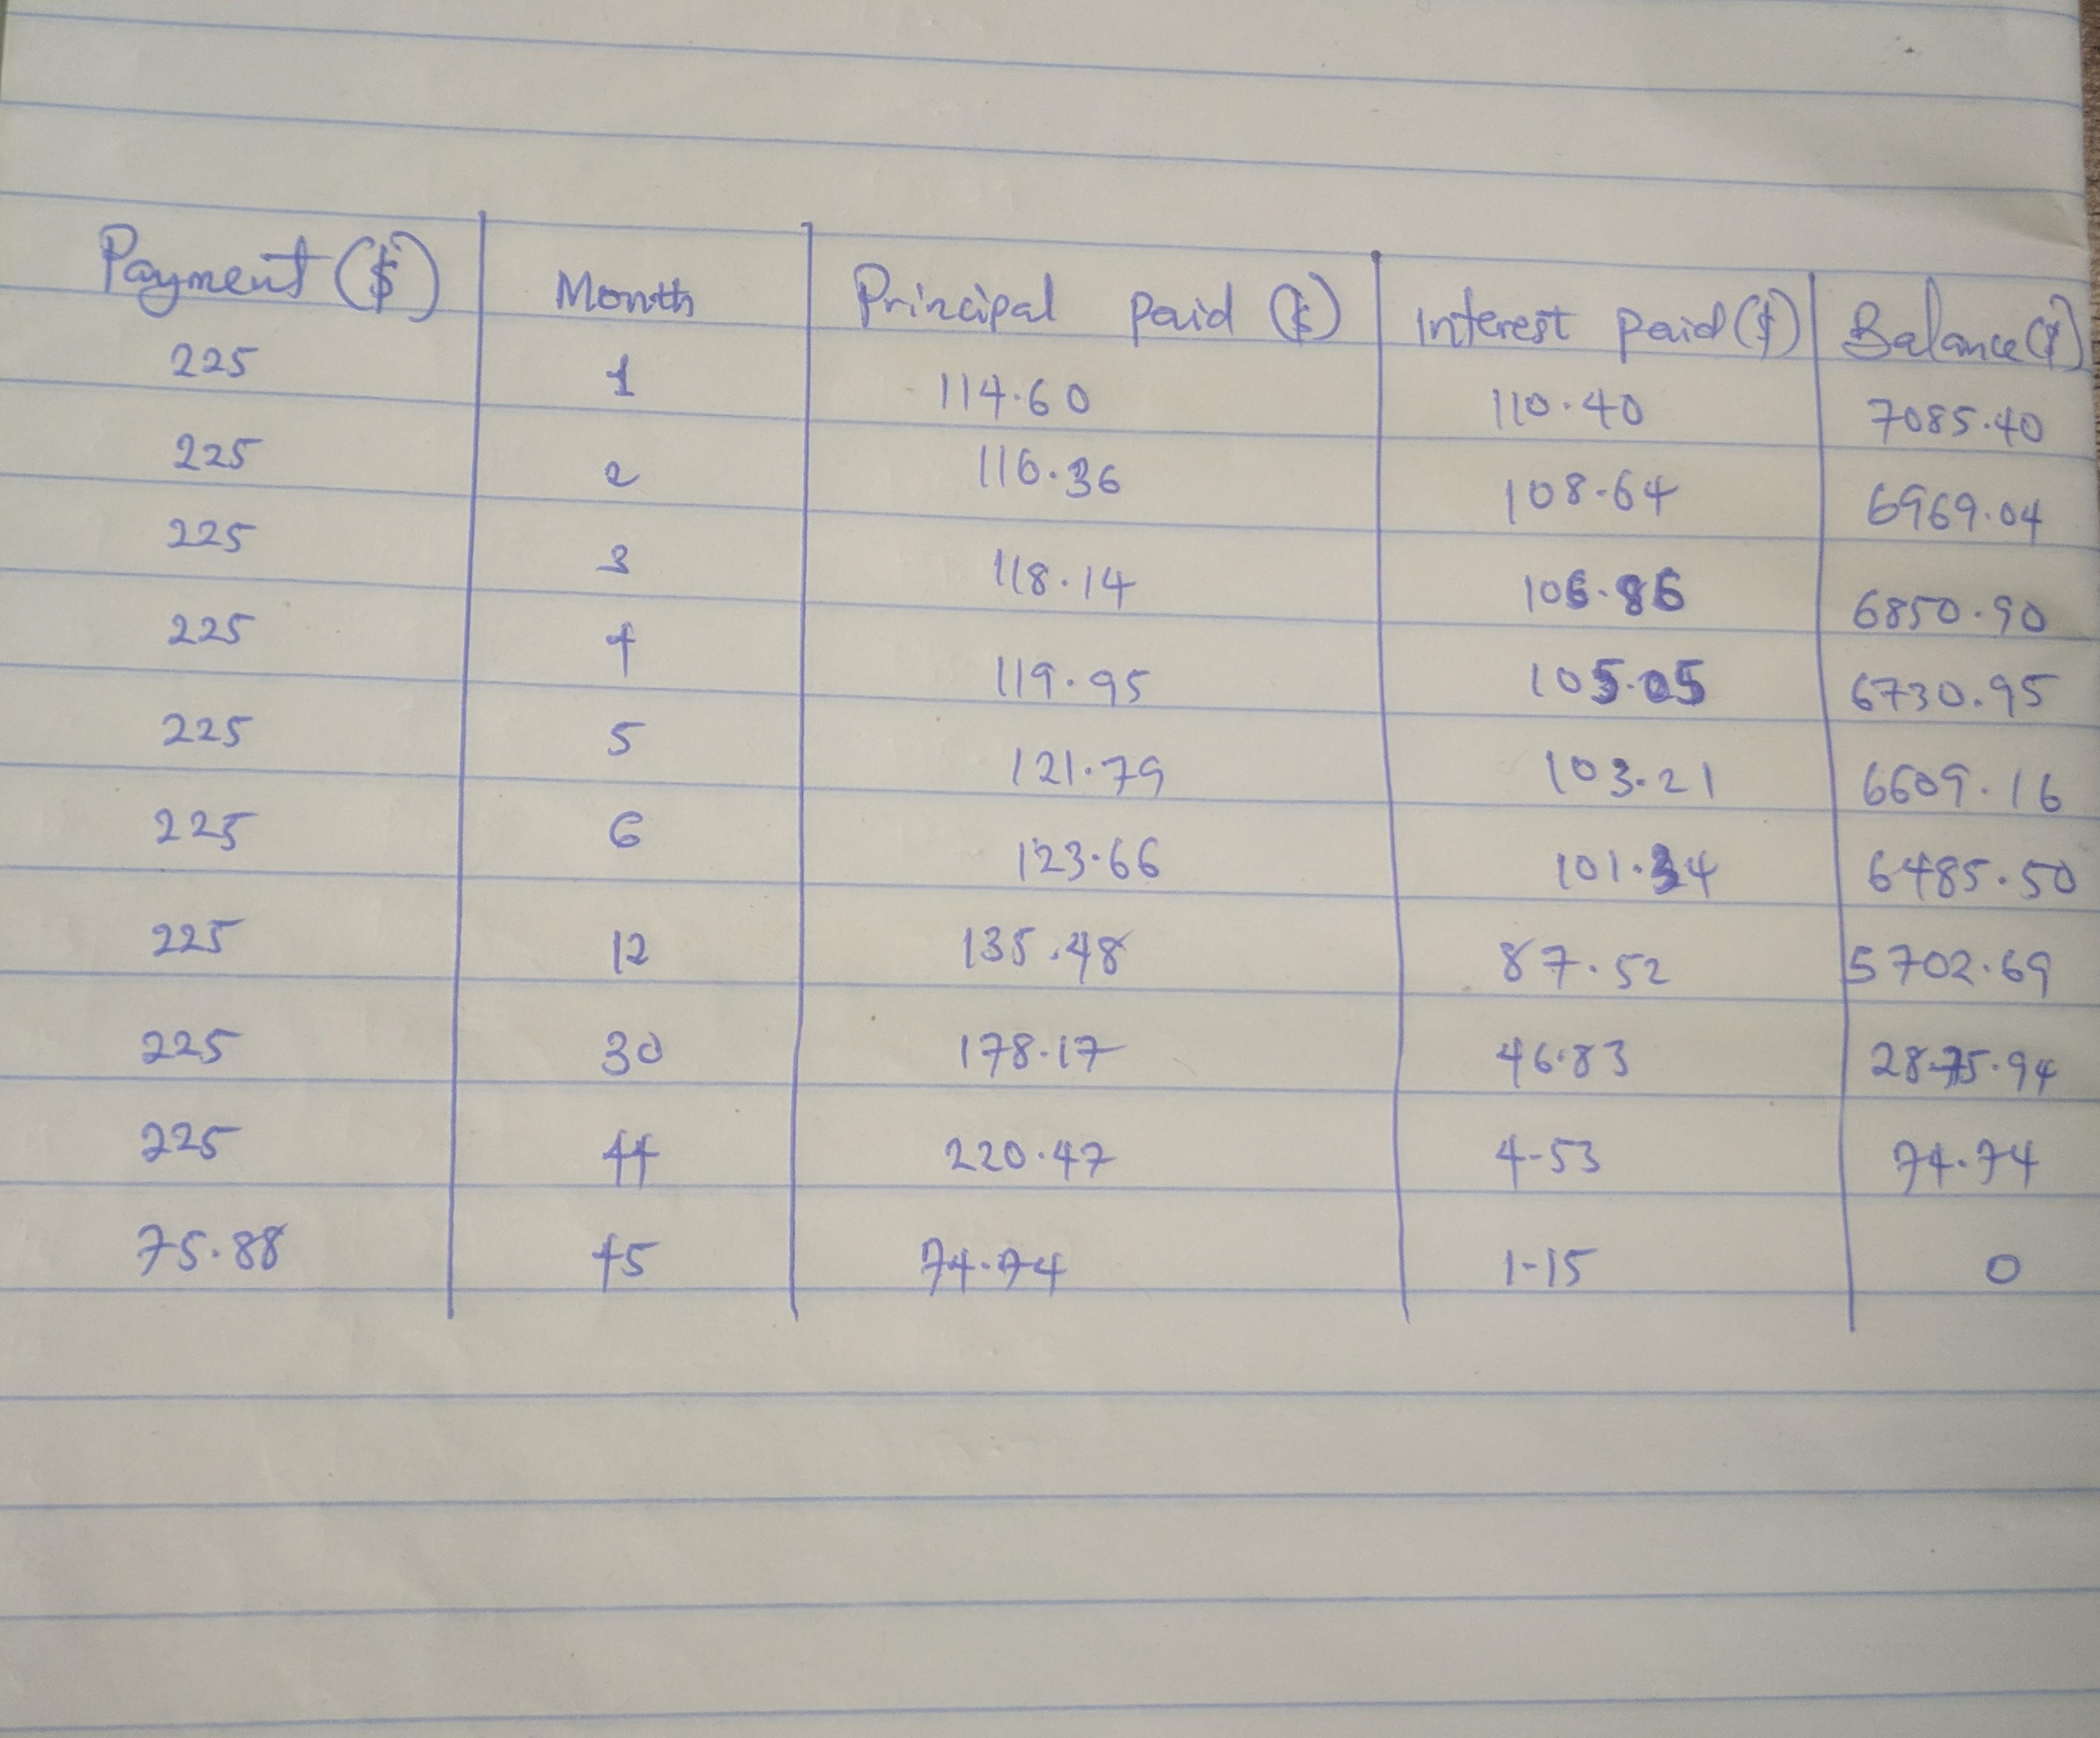 Payment ($) Month Principal paid ($) Interest paid ($) Balance ($)
225 1 114.60 110.40 7085.40
225 2 116.36 108.64 6969.04
225 3 118.14 106.86 6850.90
225 4 119.95 105.05 6730.95
225 5 121.79 103.21 6609.16
225 6 123.66 101.34 6485.50
225 12 135.48 87.52 5702.69
225 30 178.17 46.83 2875.94
225 44 220.47 4.53 74.74
75.88 45 74.74 1.15 0